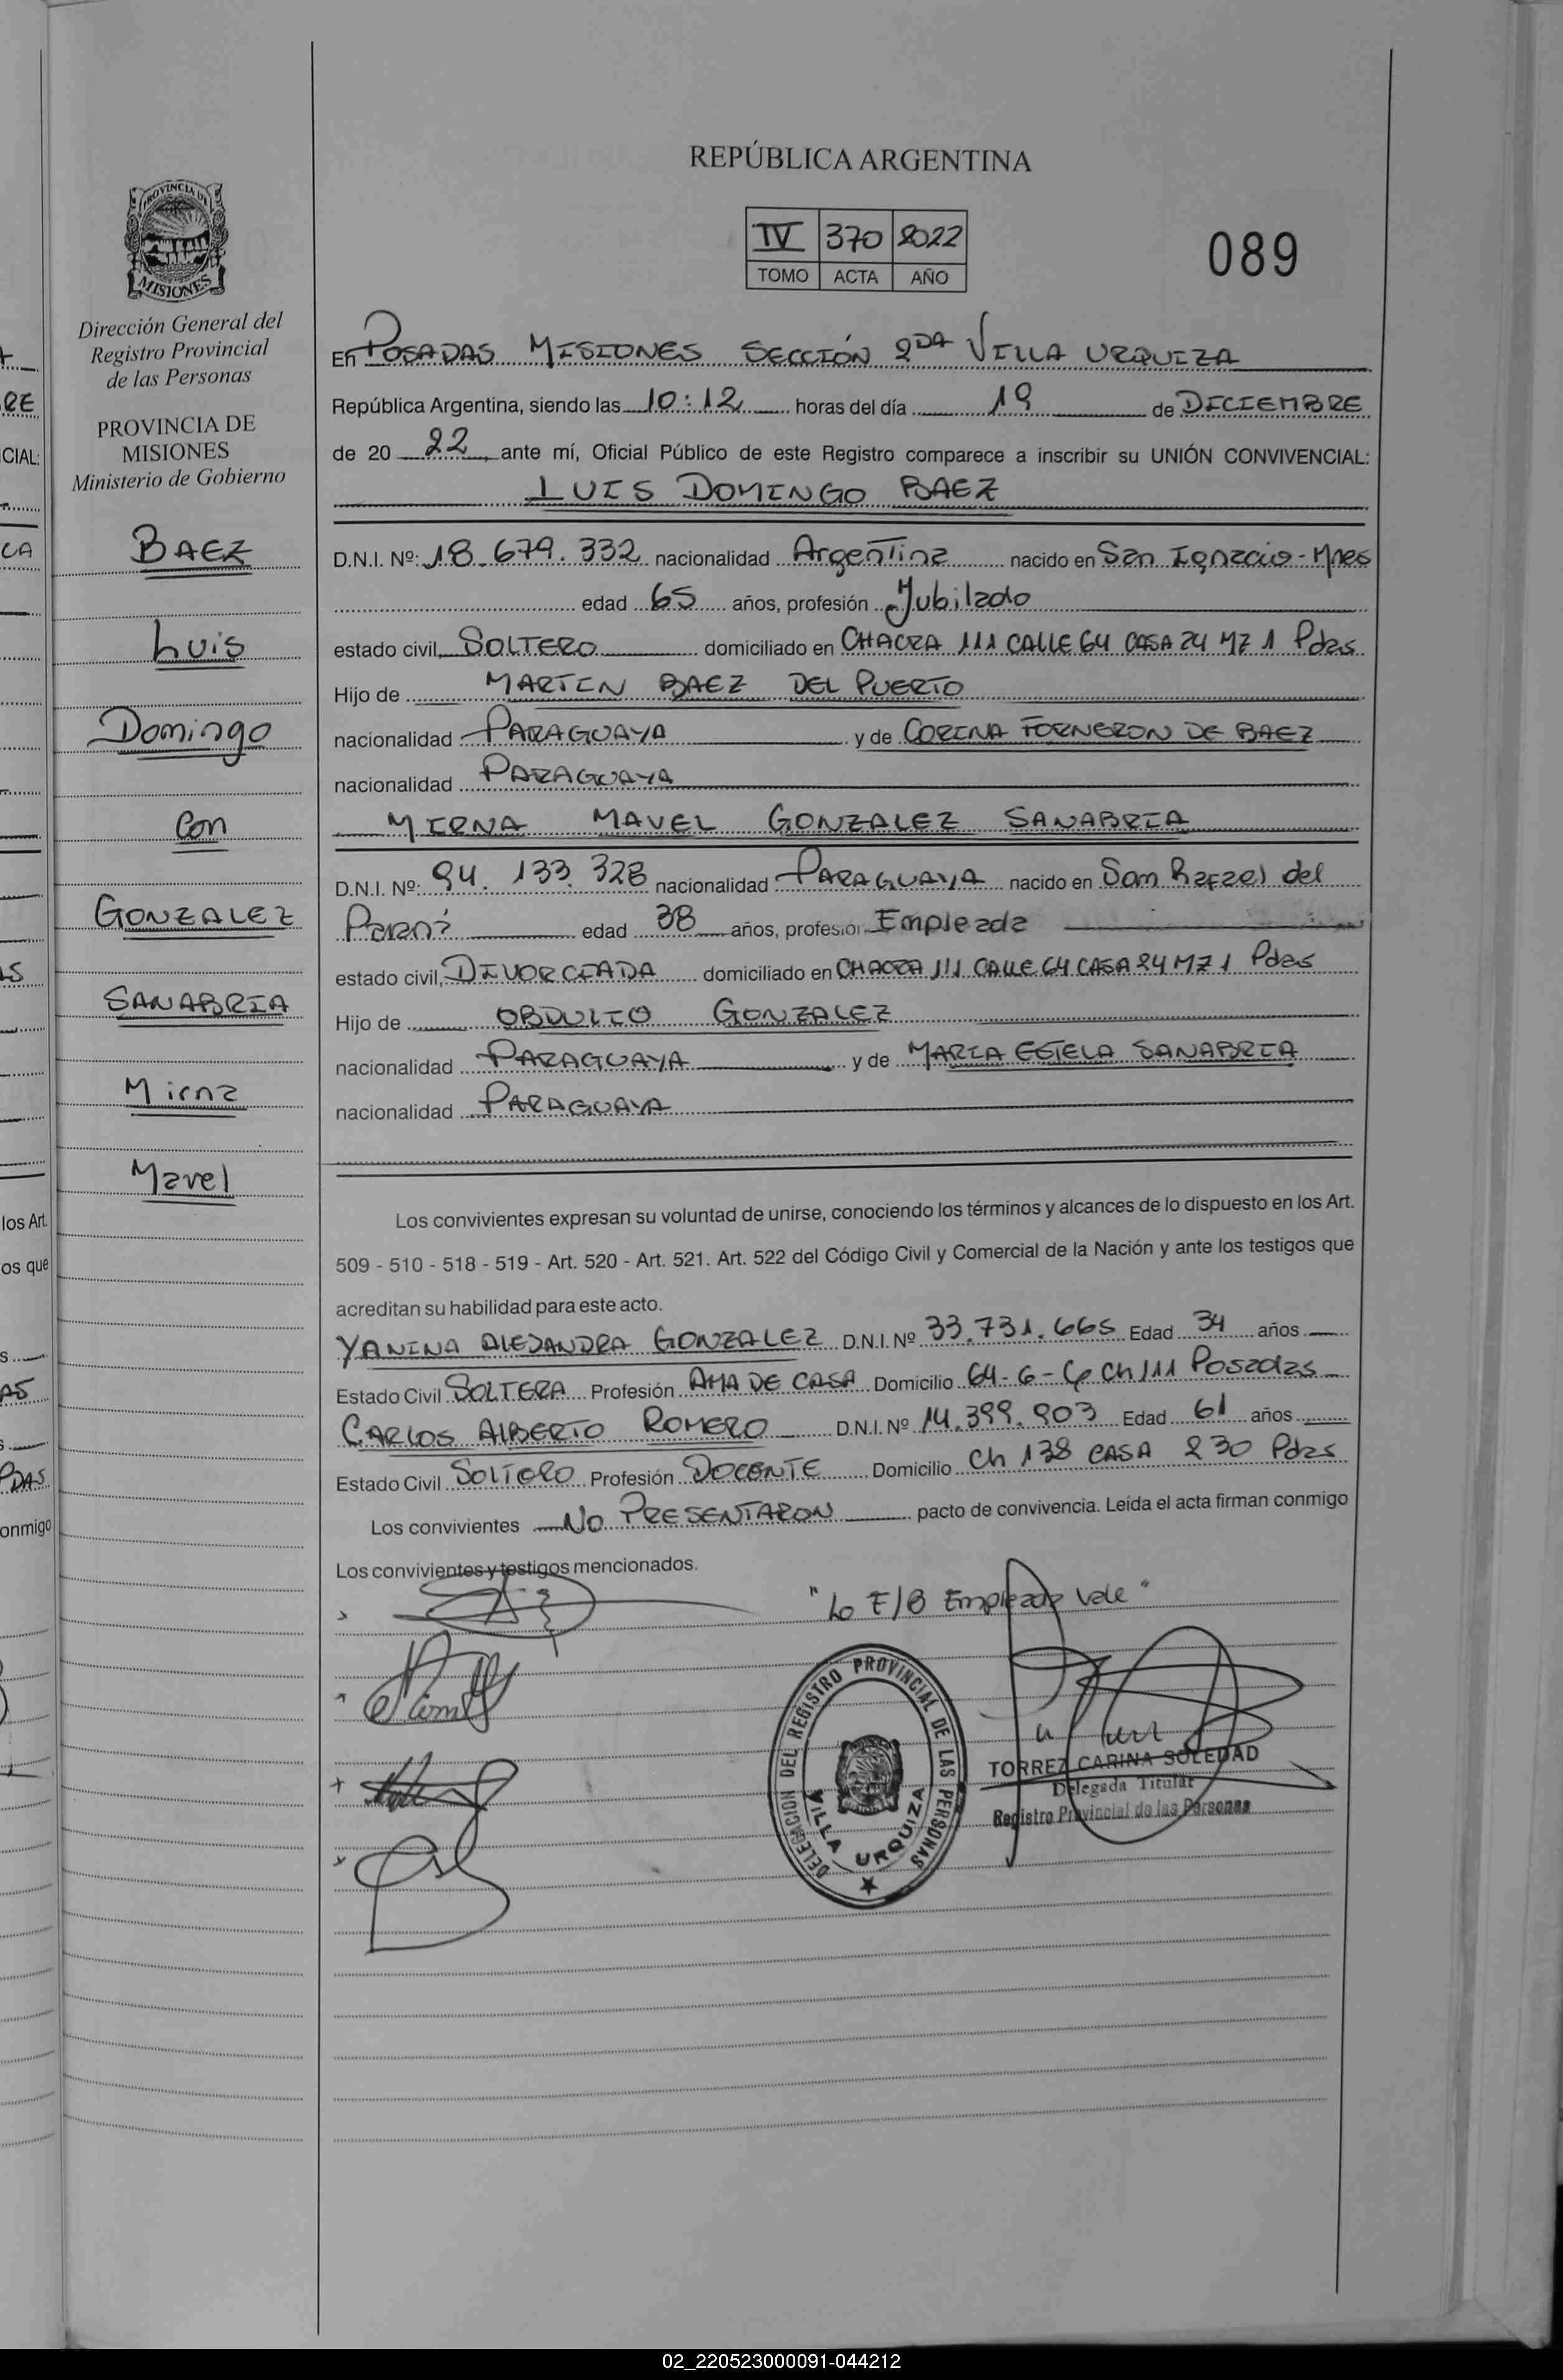 REPÚBLICA ARGENTINA
IV 370 2022
TOMO ACTA AÑO
089
PROVINCIA DE
MISIONES
Dirección General del
Registro Provincial
de las Personas
PROVINCIA DE
MISIONES
Ministerio de Gobierno
BAEZ
Luis
Domingo
Con
GONZALEZ
SANABRIA
Mirna
Mavel
En POSADAS MISIONES SECCIÓN 2DA VILLA URQUIZA
República Argentina, siendo las 10:12 horas del día 19 de DICIEMBRE
de 20 22, ante mí, Oficial Público de este Registro comparece a inscribir su UNIÓN CONVIVENCIAL:
LUIS DOMINGO BAEZ
D.N.I. Nº: 18.679.332 nacionalidad Argentina nacido en San Ignacio - Mnes
edad 65 años, profesión Jubilado
estado civil, SOLTERO domiciliado en CHACRA 111 CALLE 64 CASA 24 MZ 1 Pdas
Hijo de MARTIN BAEZ DEL PUERTO
nacionalidad PARAGUAYA y de CORINA FORNERON DE BAEZ
nacionalidad PARAGUAYA
MIRNA MAVEL GONZALEZ SANABRIA
D.N.I. Nº: 94.133.328 nacionalidad PARAGUAYA nacido en San Rafael del
Paraná edad 38 años, profesión Empleada
estado civil, DIVORCIADA domiciliado en CHACRA 111 CALLE 64 CASA 24 MZ 1 Pdas
Hijo de OBDULIO GONZALEZ
nacionalidad PARAGUAYA y de MARIA ESTELA SANABRIA
nacionalidad PARAGUAYA
Los convivientes expresan su voluntad de unirse, conociendo los términos y alcances de lo dispuesto en los Art.
509 - 510 - 518 - 519 - Art. 520 - Art. 521. Art. 522 del Código Civil y Comercial de la Nación y ante los testigos que
acreditan su habilidad para este acto.
YANINA ALEJANDRA GONZALEZ D.N.I. Nº 33.731.665 Edad 34 años
Estado Civil SOLTERA Profesión AMA DE CASA Domicilio 64-6-6 Ch 111 Posadas
CARLOS ALBERTO ROMERO D.N.I. Nº 14.399.903 Edad 61 años
Estado Civil SOLTERO Profesión DOCENTE Domicilio Ch 138 CASA 230 Pdas
Los convivientes No PRESENTARON pacto de convivencia. Leída el acta firman conmigo
Los convivientes y testigos mencionados.
"Lo E/B Empleada Vale"
DELEGACION DEL REGISTRO PROVINCIAL DE LAS PERSONAS
VILLA URQUIZA
TORREZ CARINA SOLEDAD
Delegada Titular
Registro Provincial de las Personas
02_220523000091-044212